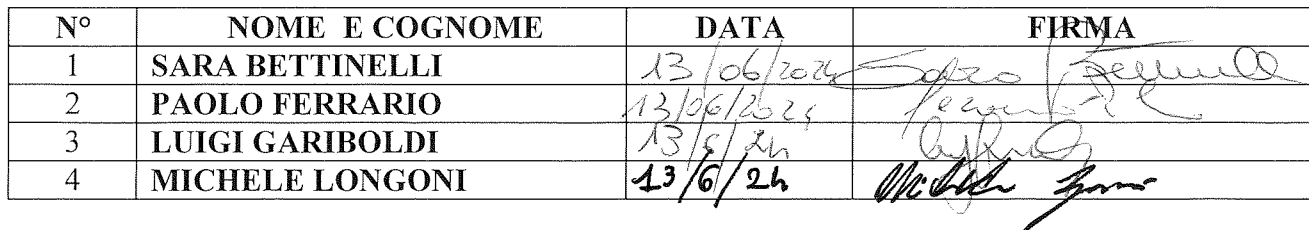 N° NOME E COGNOME DATA FIRMA
1 SARA BETTINELLI 13/06/2024 Sara Bettinelli
2 PAOLO FERRARIO 13/06/2024
3 LUIGI GARIBOLDI 13/6/24
4 MICHELE LONGONI 13/6/24